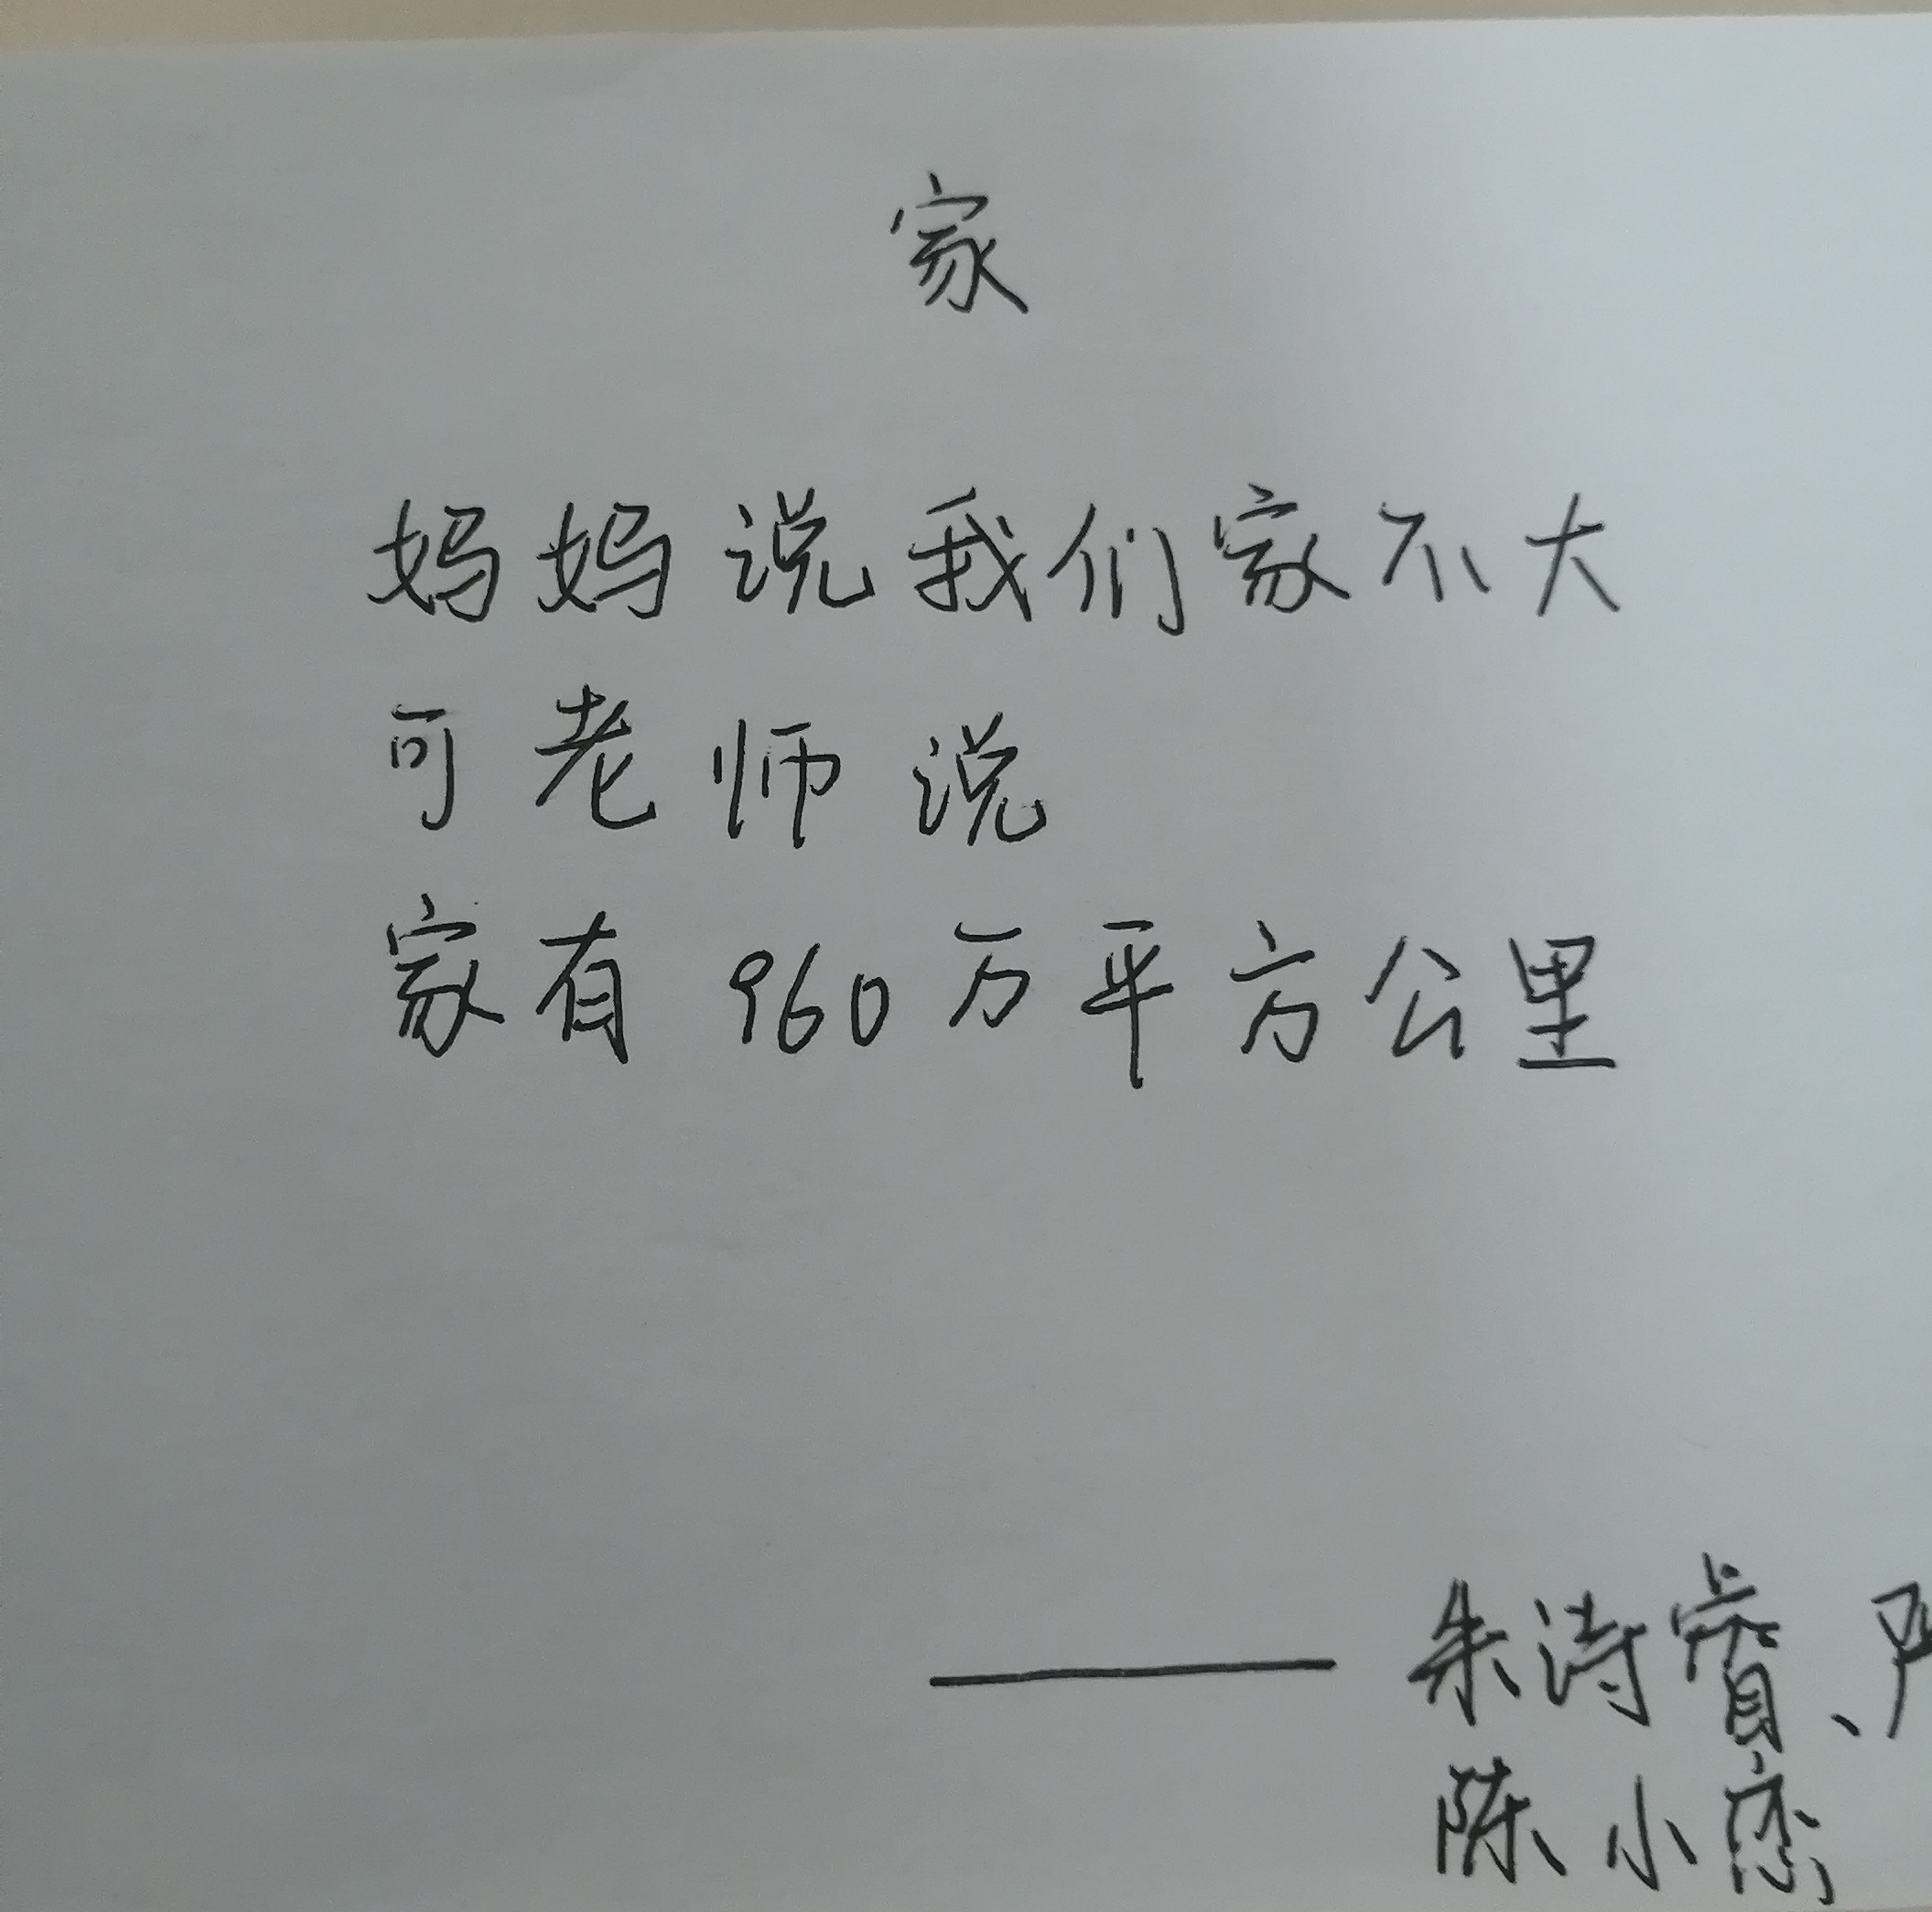 家
妈妈说我们家不大
可老师说
家有960万平方公里
——朱诗睿、
陈小恋